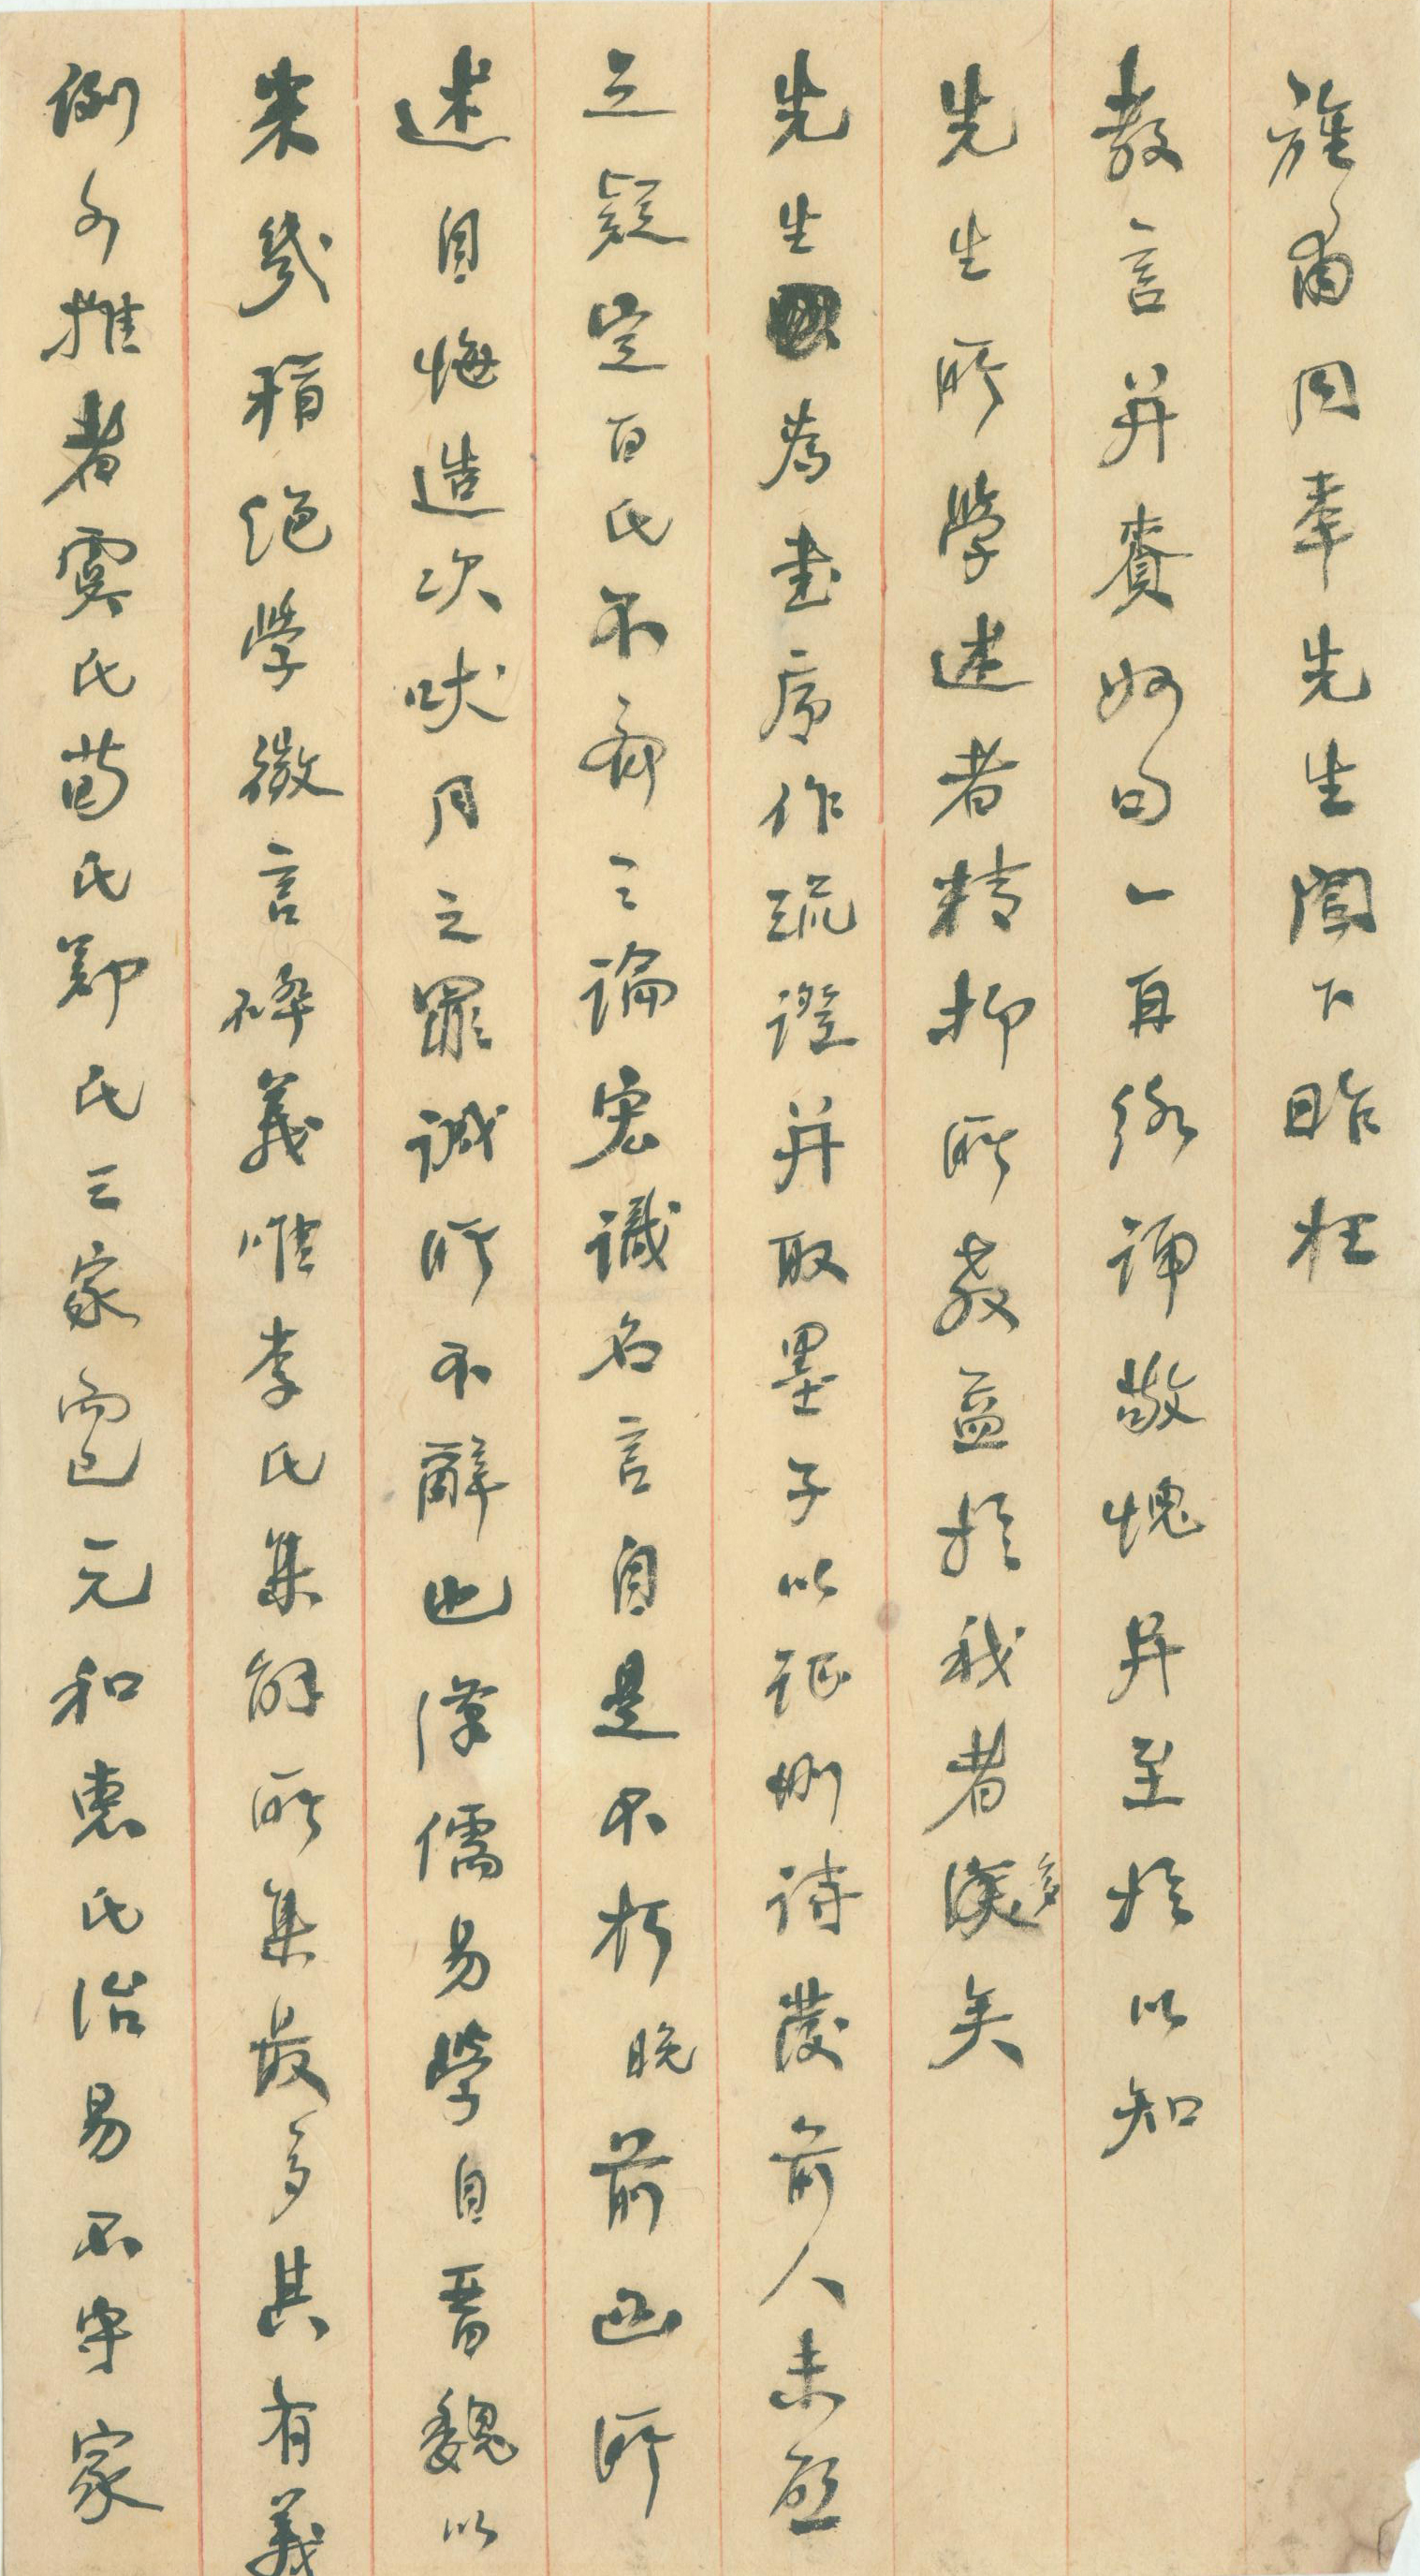 甫同年先生閣下昨枉
教言并賚妙句一再紬誦敬愧并至於以知
先生所學述者精抑所教益於我者多矣
先生為書序作疏證并取墨子以証刪詩發前人未啟
之疑定百氏不齊之論宏識名言自是不朽晚前函所
述自悔造次吠月之罪誠所不辭也漢儒易學自晋魏以
来幾稱絕學微言碎義唯李氏集解所集最多其有義
例可推者虞氏荀氏鄭氏三家而已元和惠氏治易不守家